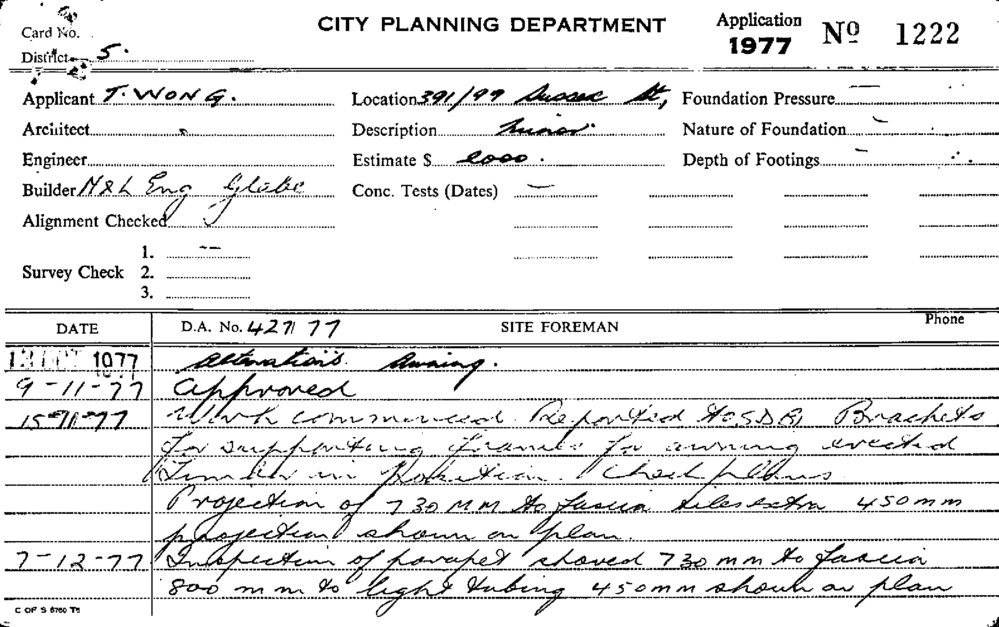 CITY PLANNING DEPARTMENT
Application 1977 Nº 1222
Card No.
District 5.
Applicant T. WONG. Location 391/99 Sussex St, Foundation Pressure —
Architect Description Minor. Nature of Foundation —
Engineer Estimate $ 2000. Depth of Footings —
Builder H & L Eng Glebe Conc. Tests (Dates) —
Alignment Checked
Survey Check 1. —
2.
3.
DATE D.A. No. 427/77 SITE FOREMAN Phone
13 OCT 1977 Alterations Awning.
9-11-77 Approved
15-11-77 Work commenced Reported to SDBI Brackets
for supporting frame for awning erected
Timber in Check plans
Projection of 730 MM to fascia tiles extra 450 mm
projection shown on plan.
7-12-77 Inspection of parapet shoved 730 mm to fascia
800 mm to light tubing 450mm shown on plan
C OF S 6760 T5